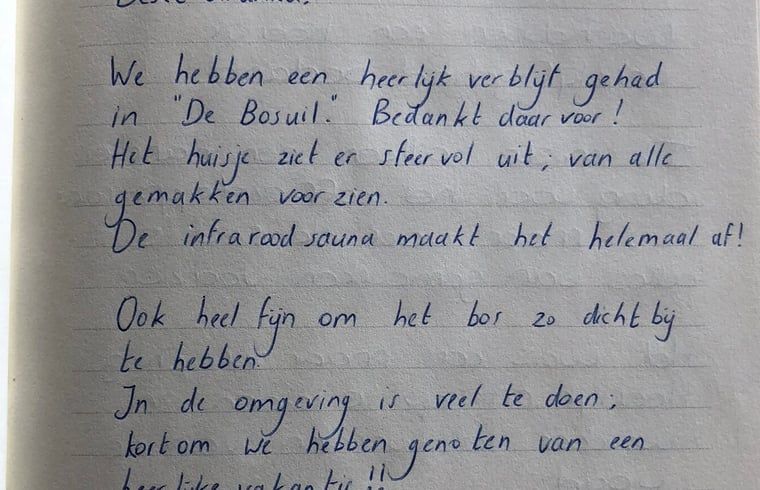 We hebben een heerlijk verblijf gehad
in "De Bosuil." Bedankt daar voor!
Het huisje ziet er sfeervol uit; van alle
gemakken voorzien.
De infrarood sauna maakt het helemaal af!
Ook heel fijn om het bos zo dichtbij
te hebben.
In de omgeving is veel te doen;
kortom we hebben genoten van een
heerlijke vakantie!!